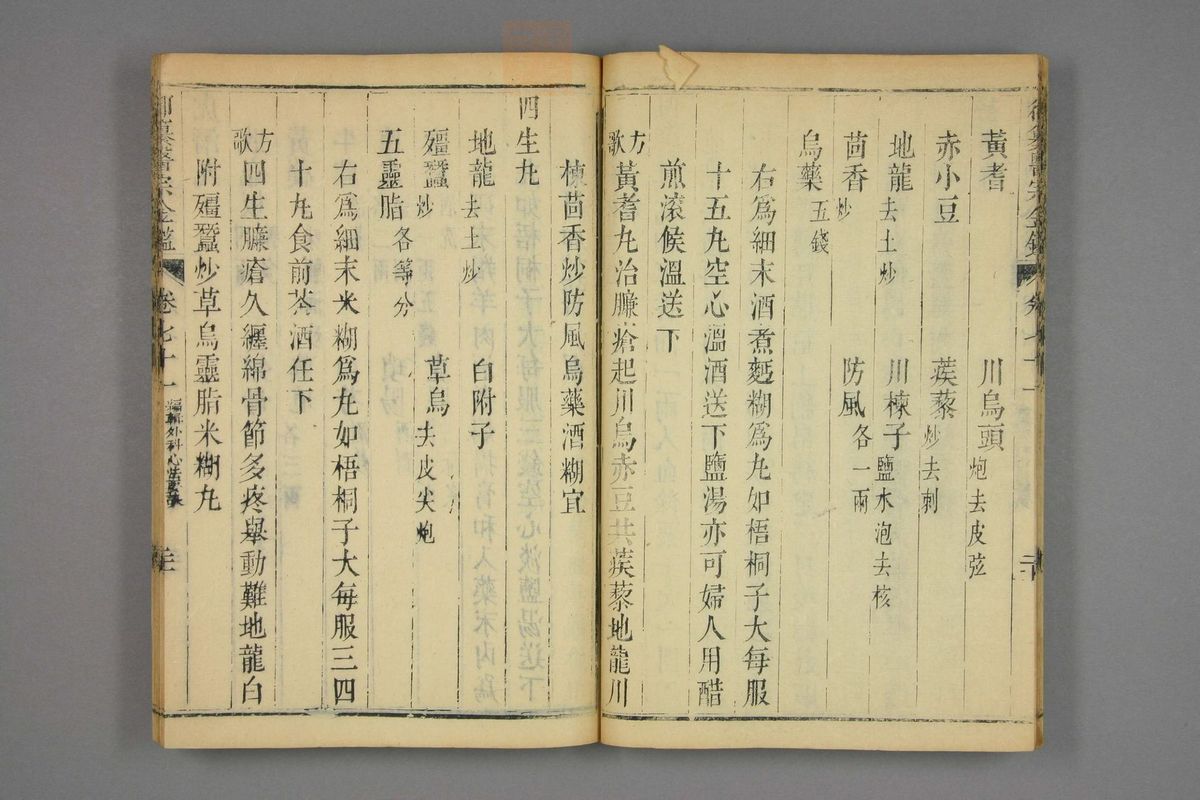 黃耆 川烏頭炮去皮弦
赤小豆 蒺藜炒去刺
地龍去土炒 川楝子鹽水泡去核
茴香炒 防風各一兩
烏藥五錢
右爲細末酒煮麪糊爲丸如梧桐子大每服
十五丸空心溫酒送下鹽湯亦可婦人用醋
煎滚候溫送下
方歌黃耆丸治臁瘡起川烏赤豆共蒺藜地龍川
楝茴香炒防風烏藥酒糊宜
四生丸
地龍去土炒 白附子
殭蠶炒 草烏去皮尖炮
五靈脂各等分
右爲細末米糊爲丸如梧桐子大每服三四
十丸食前茶酒任下
方歌四生臁瘡久纏綿骨節多疼舉動難地龍白
附殭蠶炒草烏靈脂米糊丸
御纂醫宗金鑑 卷七十一 編輯外科心法要訣